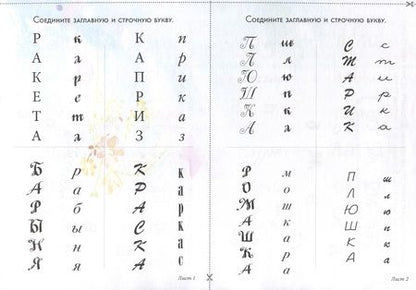 Соедините заглавную и строчную букву.
Р к К п
А а А р
К р П и
Е е Р к
Т т И а
А а З з
Б р К к
А а Р а
Р б А р
Ы ы С к
Н н К а
Я я А с
Лист 1
Соедините заглавную и строчную букву.
П ш С с
Л л Т т
Ю ю А и
Ш п Р р
К к И к
А а К а
Р м
О о
М ш
А к
Ш а
К р
А а
П ш
Л л
Ю ю
Ш п
К к
А а
Лист 2